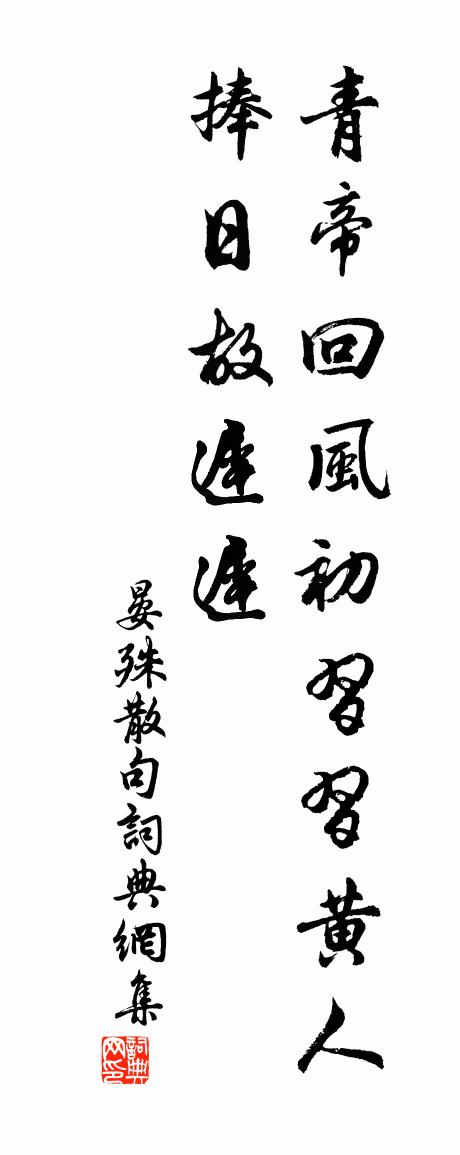 青帝回風初習習黄人
捧日故遲遲
晏殊散句詞典網集
詞典网印